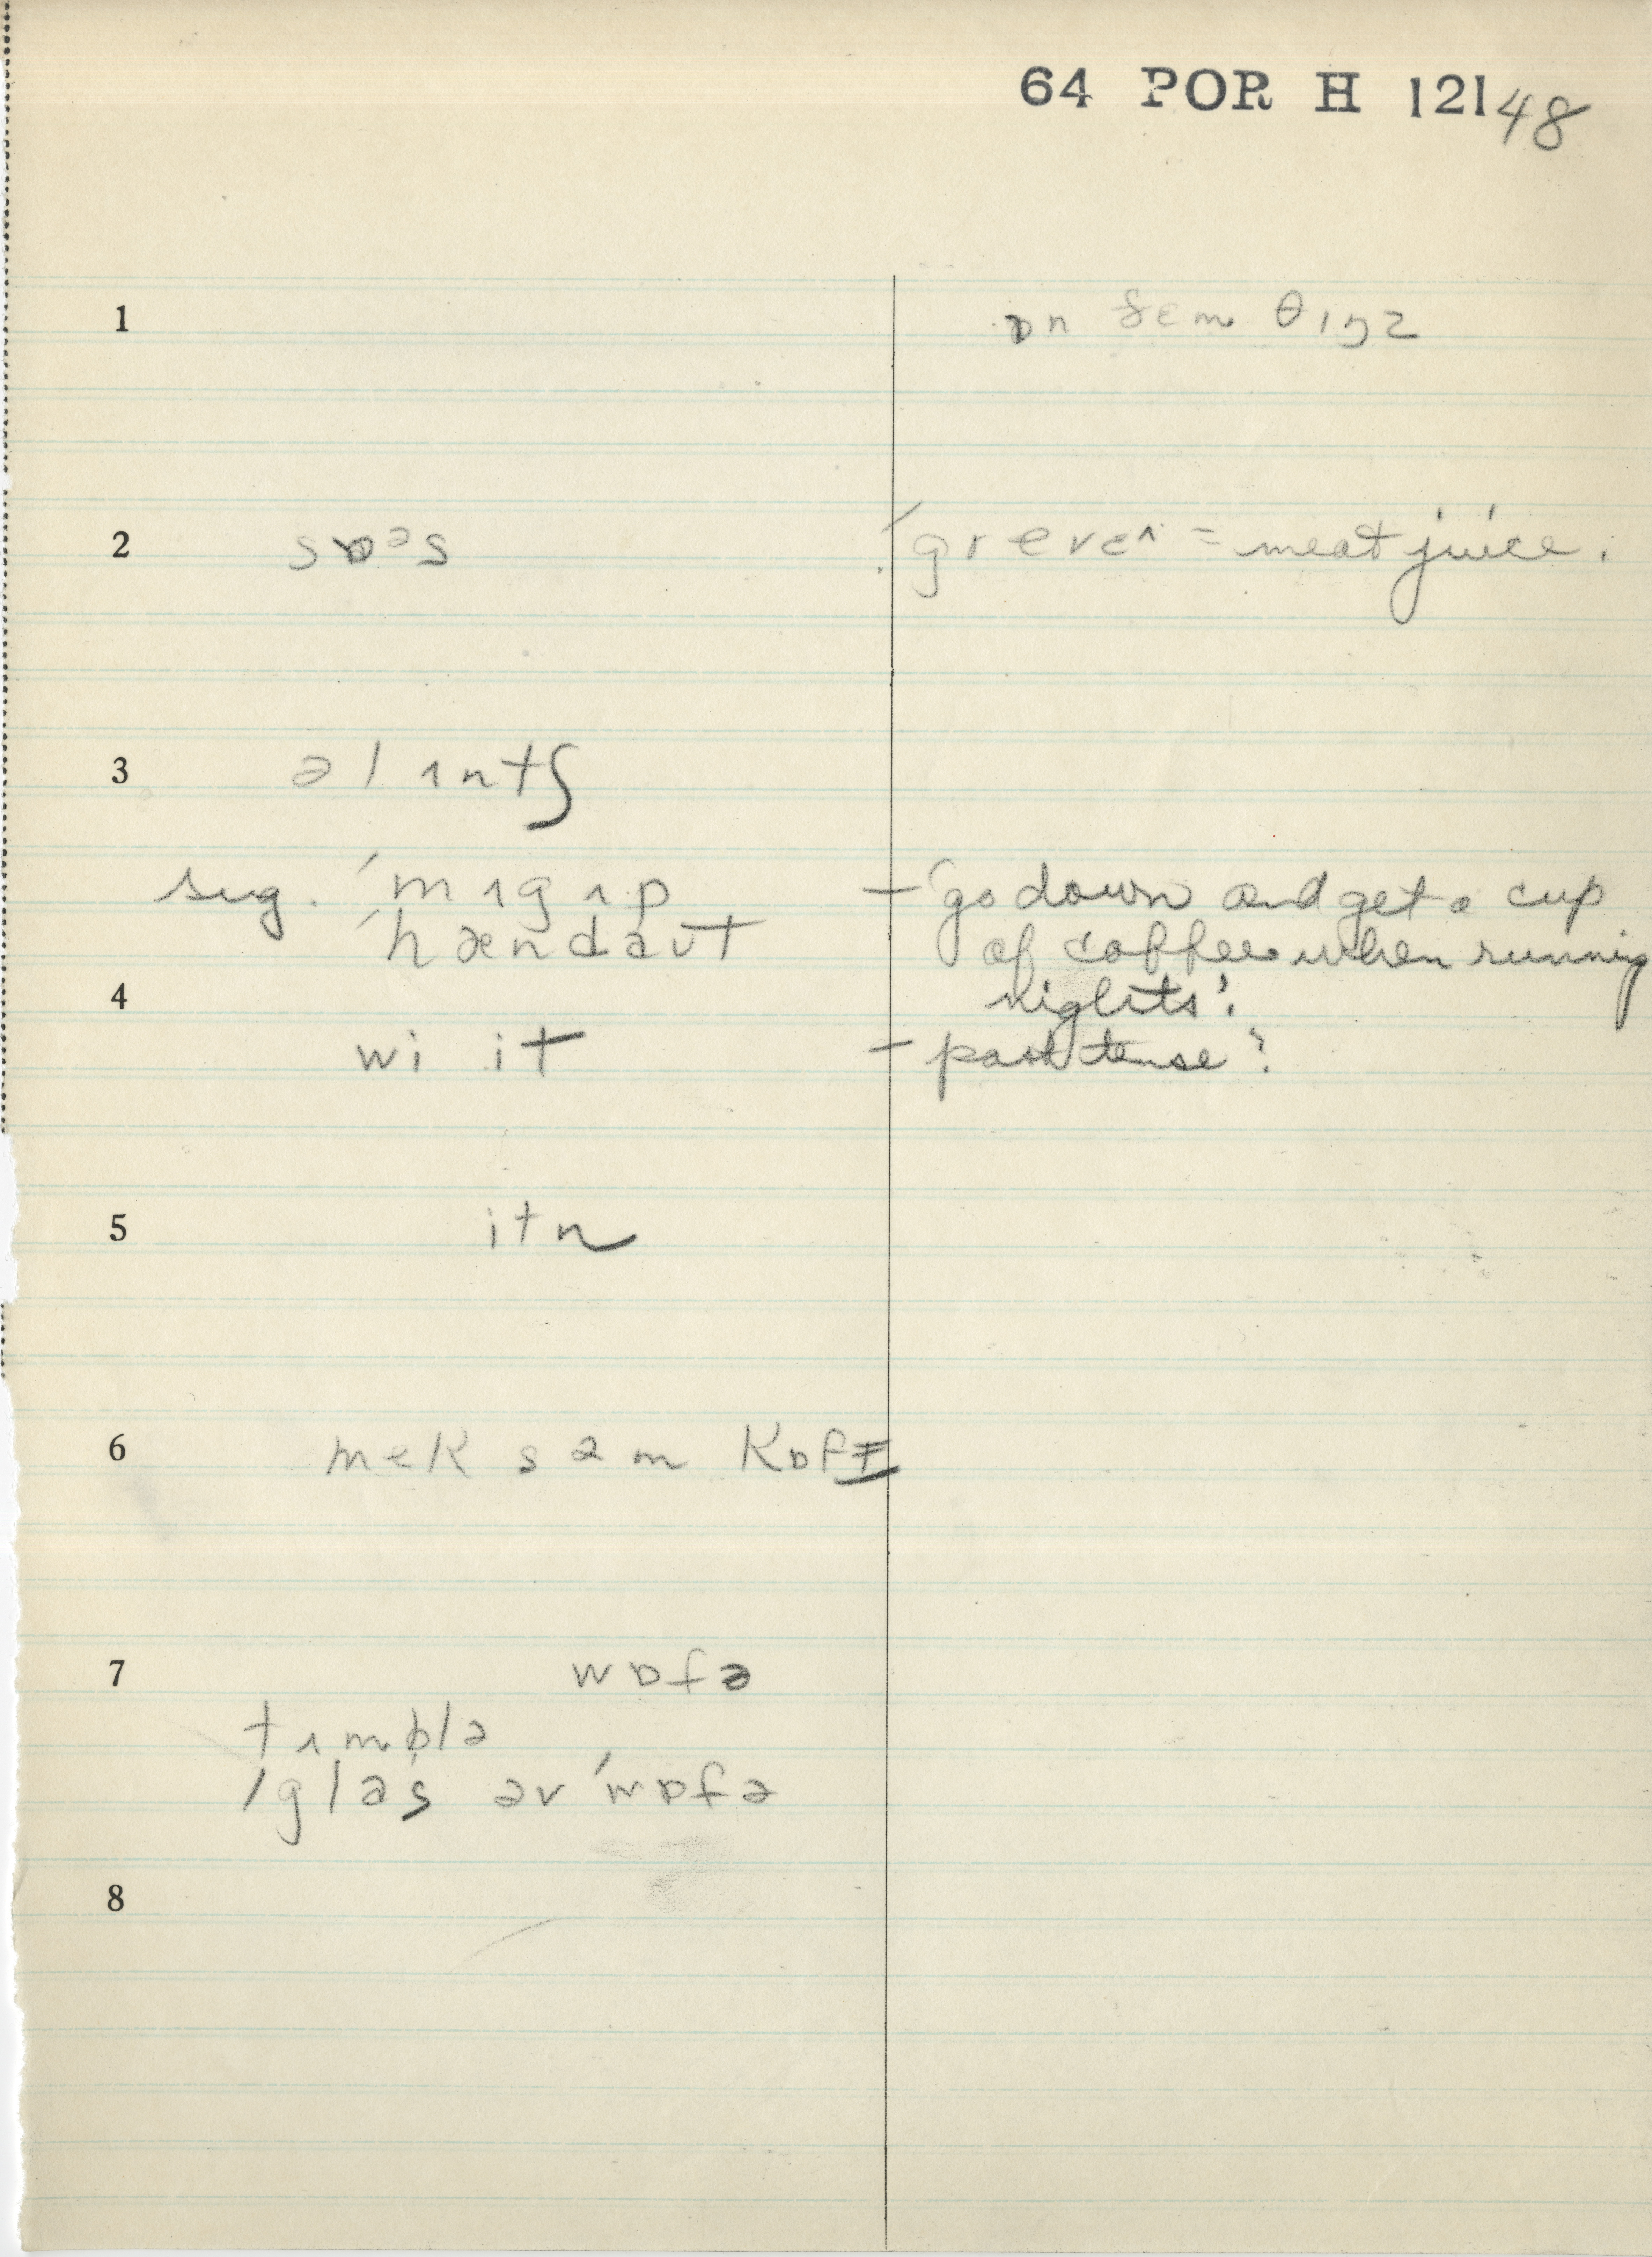 64 POR H 121 48
1 ɒn sɛm θɪŋz
2 sɒəs ˈgrevɛɪ = meat juice.
3 ə lɪntʃ
sug. ˈmɪgɪp – 'go down and get a cup
ˈhændaʊt of coffee when running
4 nights'.
wi it – past tense?
5 itn
6 mek səm kɒfɪ
7 wɒfə
tɪmblə
ˈglas əv ˈwɒfə
8